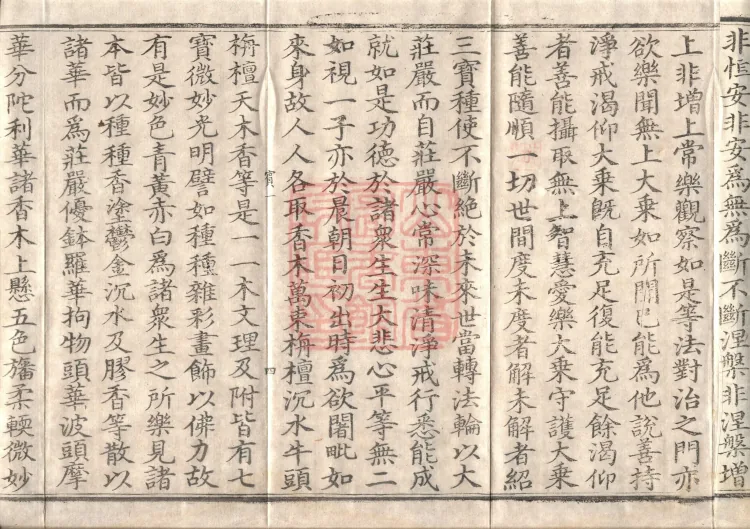 非恒安非安為無為斷不斷涅槃非涅槃增
上非增上常樂觀察如是等法對治之門亦
欲樂聞無上大乘如所聞已能為他說善持
淨戒渴仰大乘旣自充足復能充足餘渴仰
者善能攝取無上智慧愛樂大乘守護大乘
善能隨順一切世間度未度者解未解者紹
三寶種使不斷絕於未來世當轉法輪以大
莊嚴而自莊嚴心常深味清淨戒行悉能成
就如是功德於諸衆生生大悲心平等無二
如視一子亦於晨朝日初出時為欲闍毗如
來身故人人各取香木萬束栴檀沉水牛頭
寶一
四
栴檀天木香等是一一木文理及附皆有七
寶微妙光明譬如種種雜彩畫飾以佛力故
有是妙色青黃赤白為諸衆生之所樂見諸
木皆以種種香塗鬱金沉水及膠香等散以
諸華而為莊嚴優鉢羅華拘物頭華波頭摩
華分陀利華諸香木上懸五色旛柔輭微妙